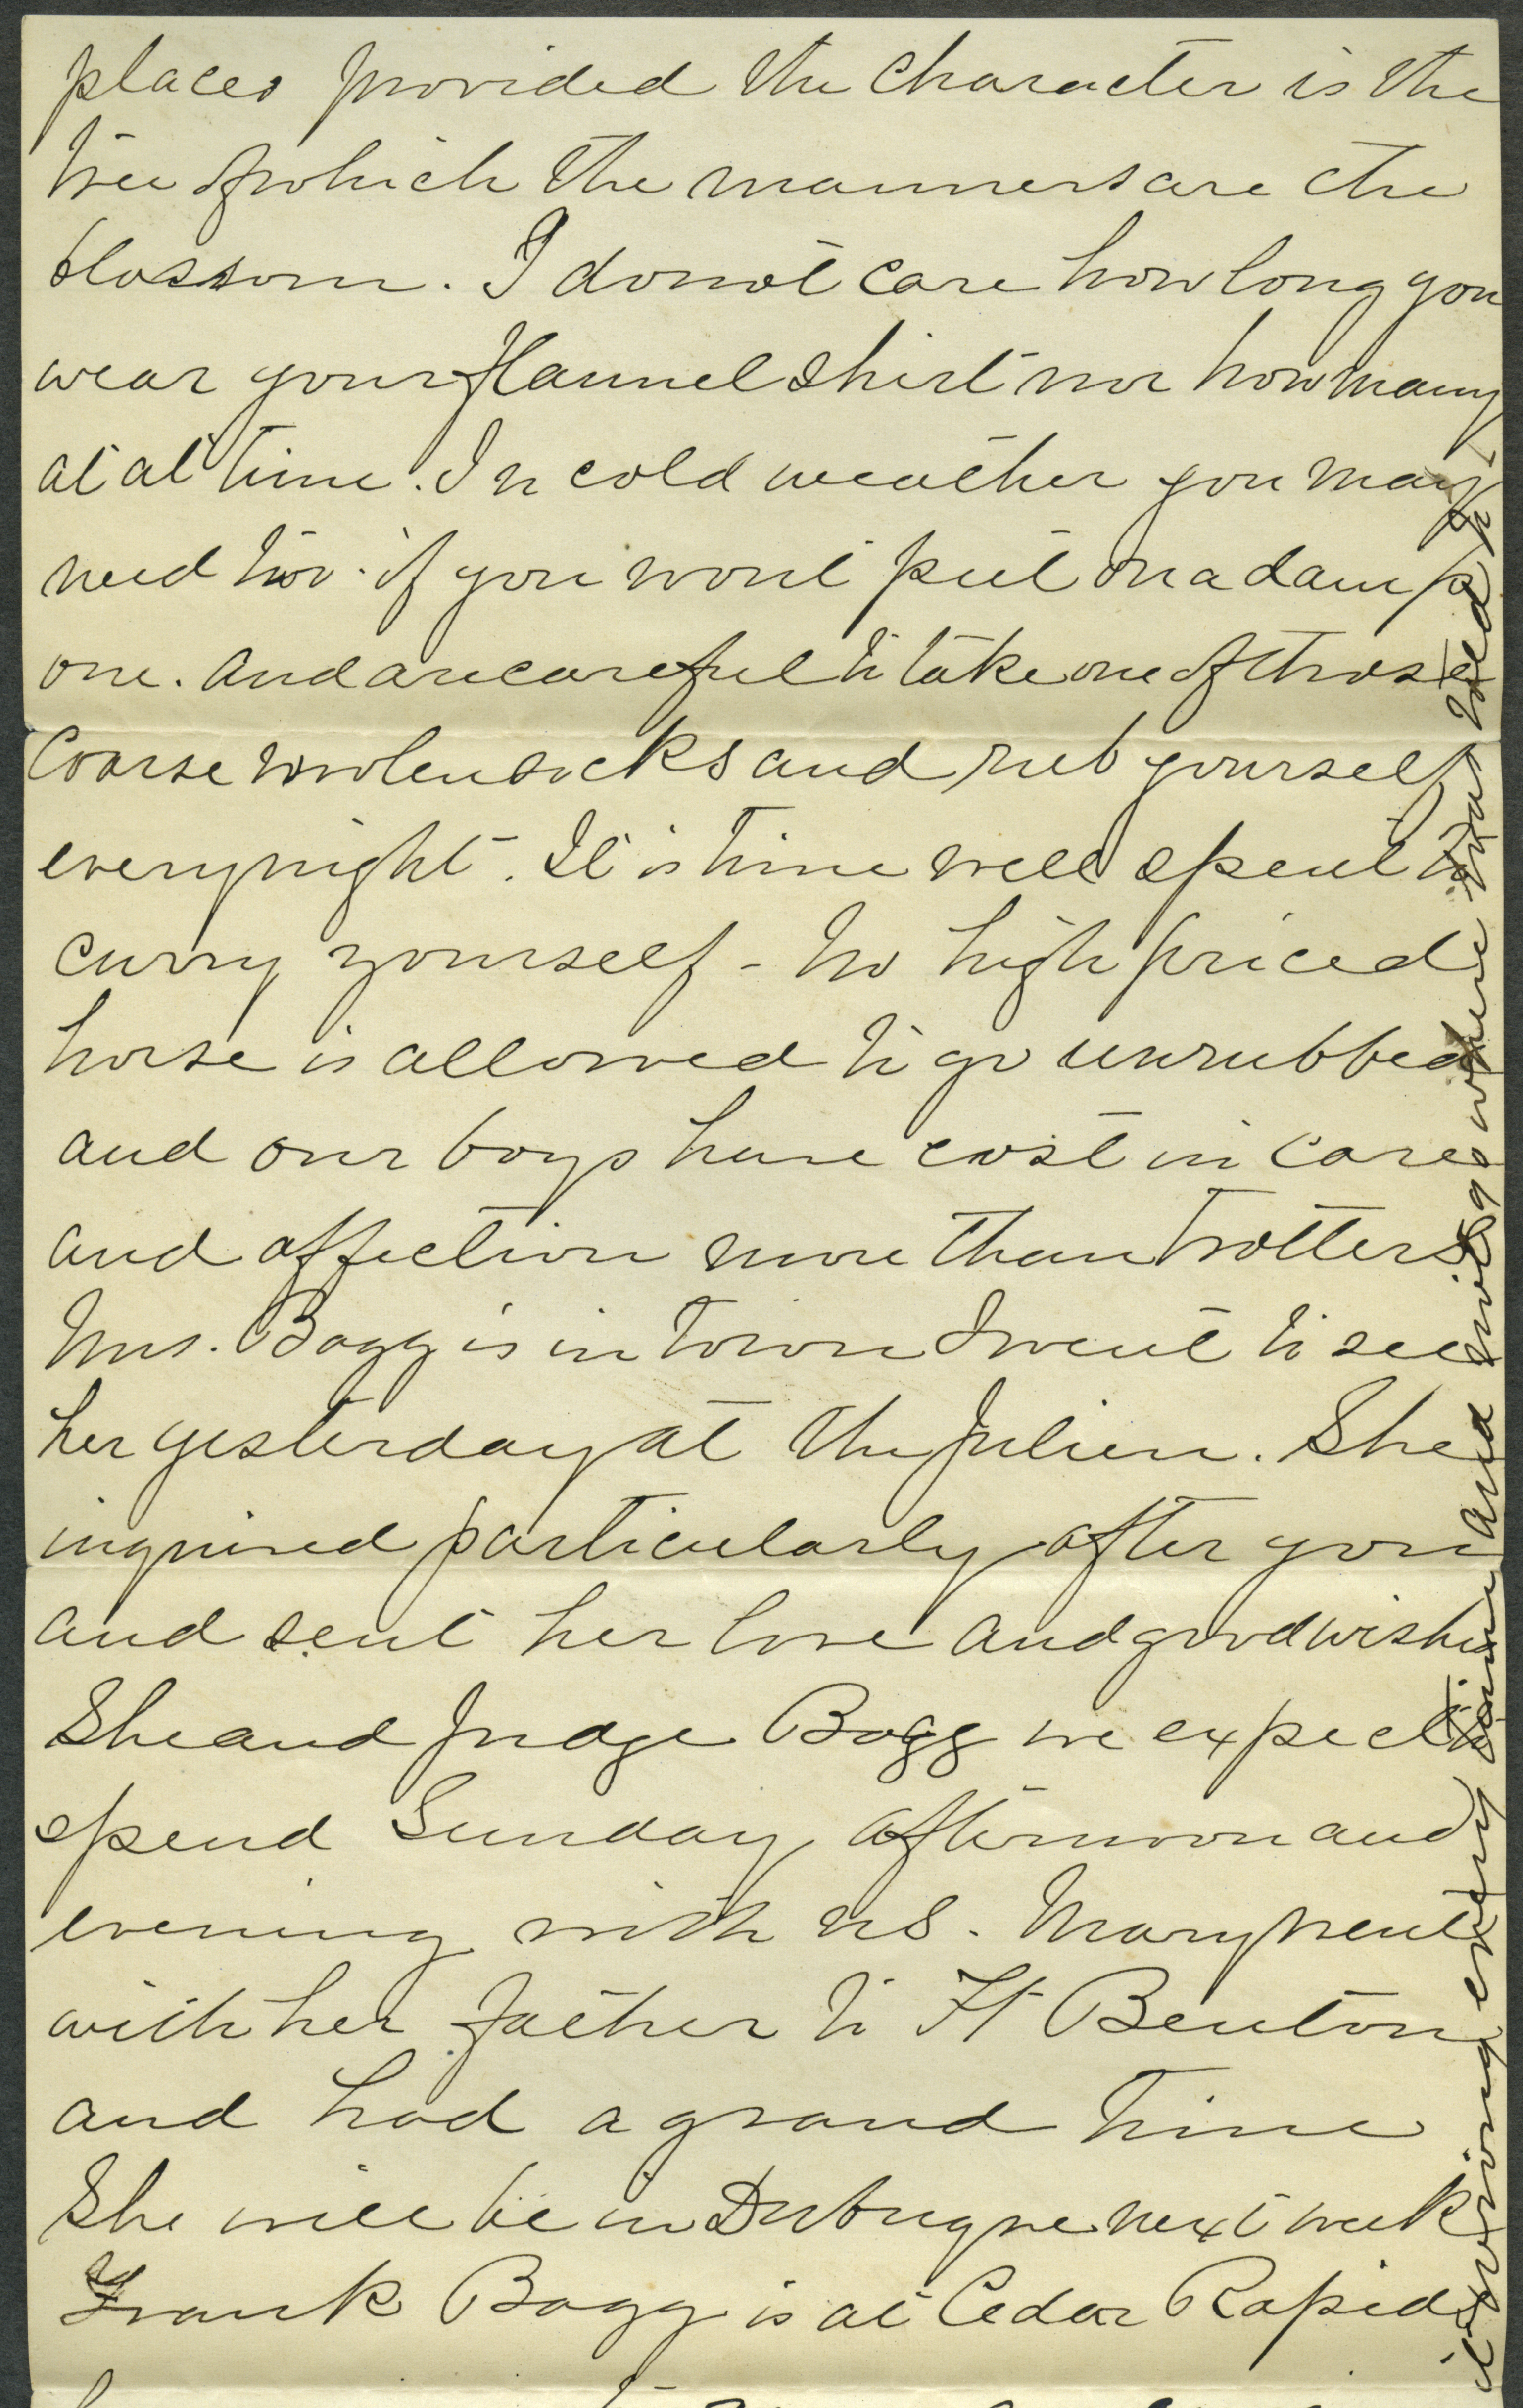 places provided the character is the
tree of which the manners are the
blossom. I do not care how long you
wear your flannel shirt nor how many
at at time. In cold weather you may
need two. if you wont put on a damp
one. and are careful to take one of those
Coarse woolen socks and rub yourself
every night. It is time well spent to
curry yourself - no high priced
horse is allowed to go unrubbed
and our boys have cost in care
and affection more than trotters
Mrs. Bagg is in town I went to see
her yesterday at the Julien. She
inquired particularly after you
and sent her love and good wishes
She and Judge Bagg we expect to
spend Sunday afternoon and
evening with us. Mary went
with her father to Ft Benton
and had a grand time
She will be in Dubuque next week
Frank Bagg is at Cedar Rapids
wrong every time and will go where